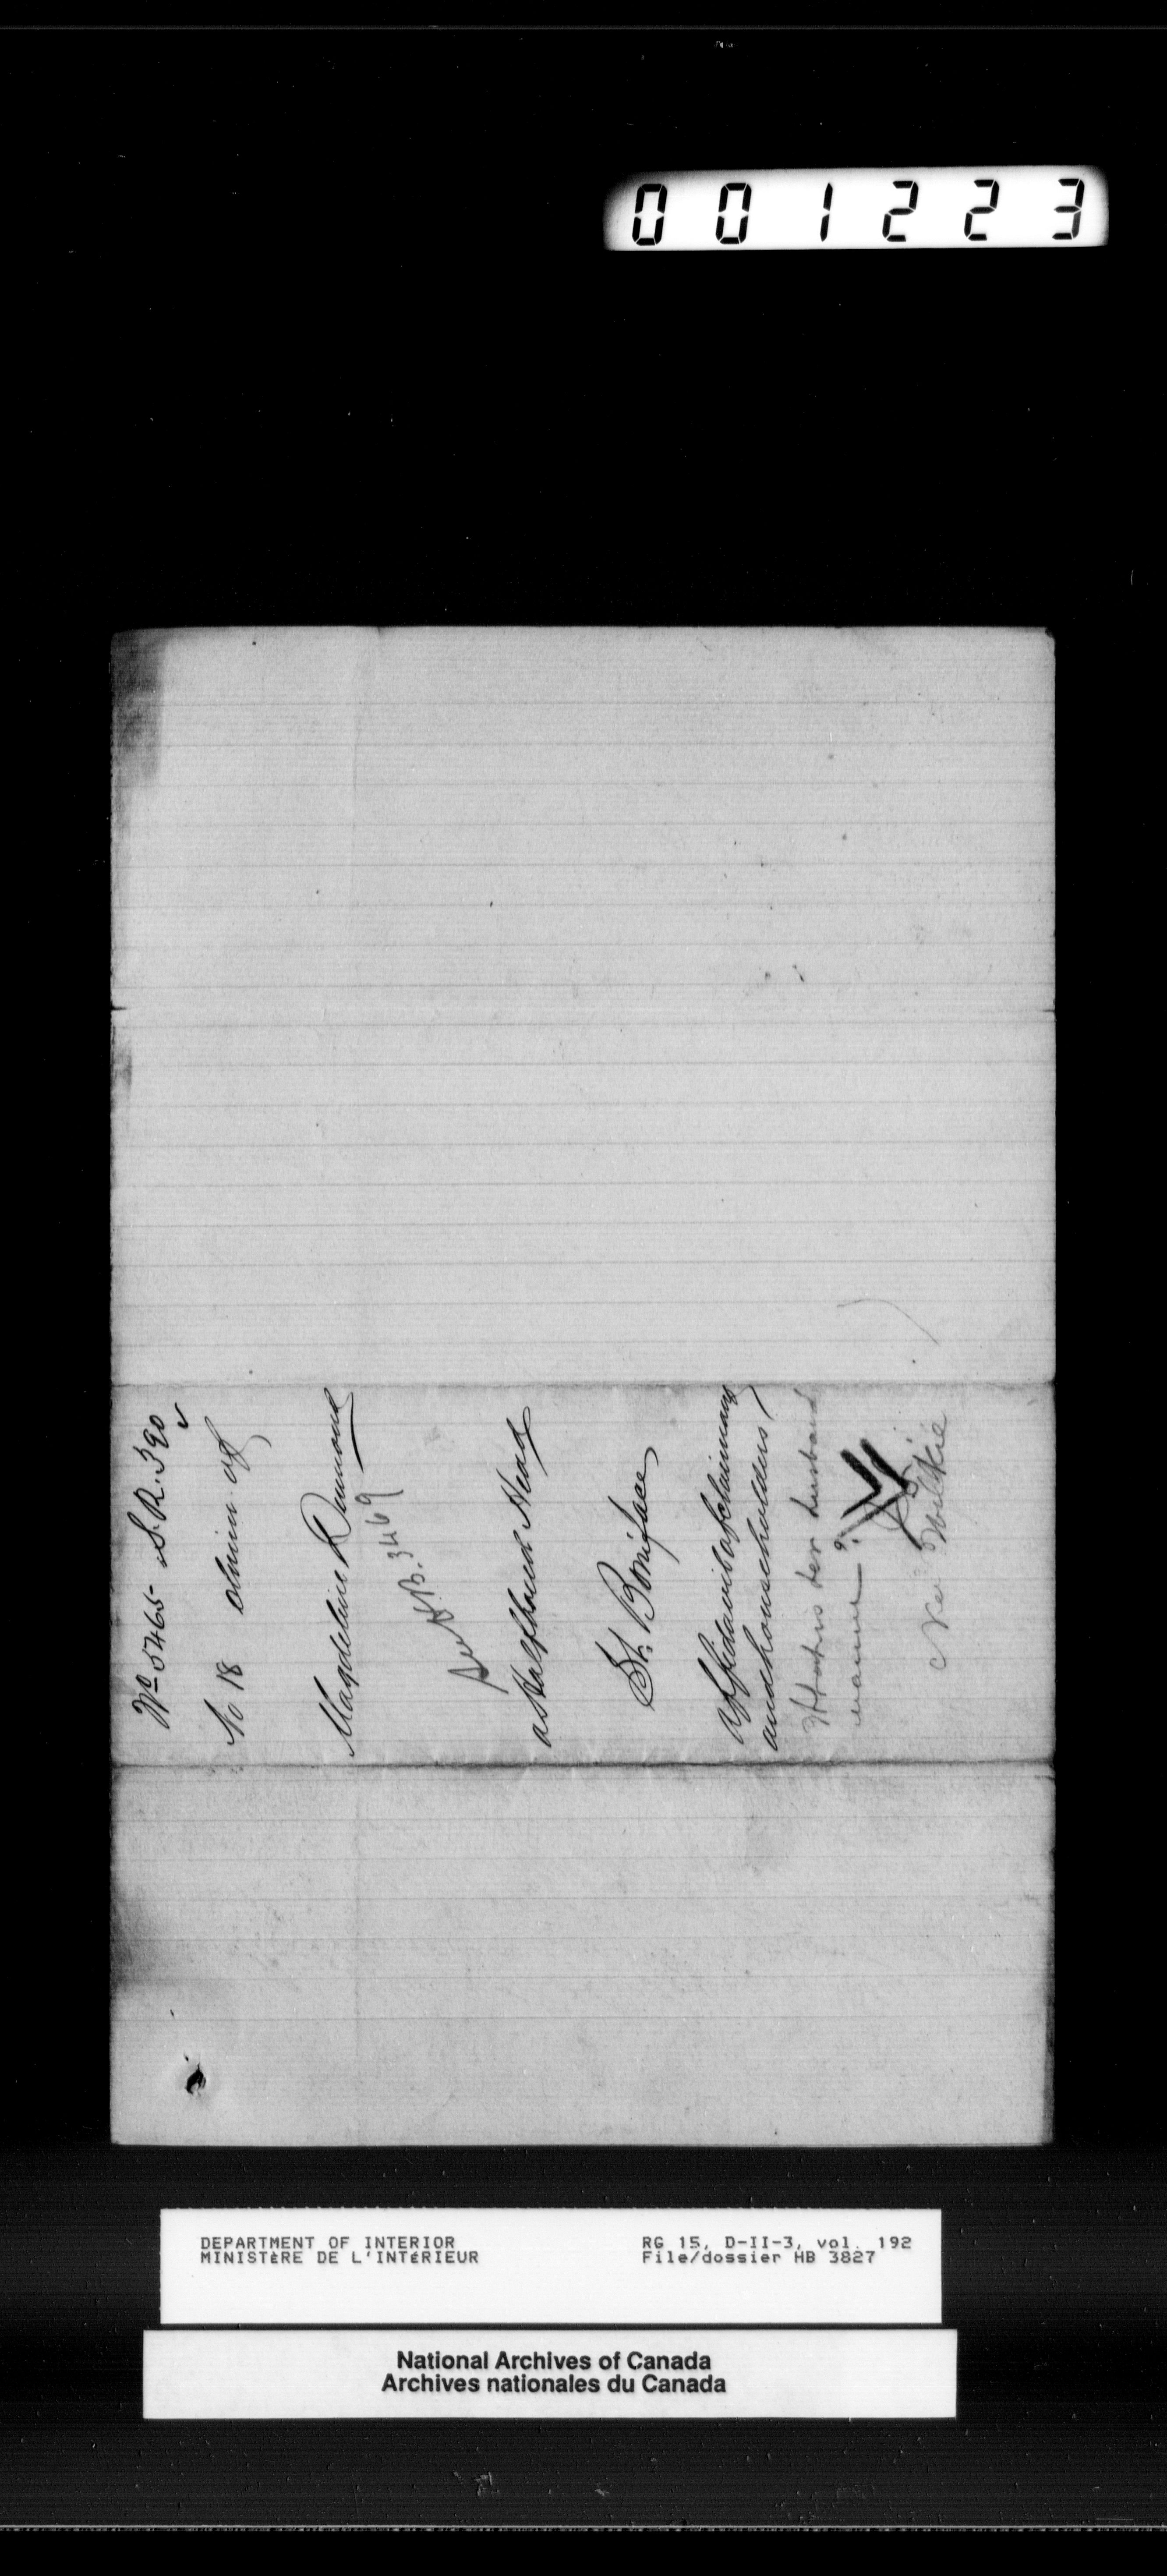 001223
No 5465 S.R. 390
No 18 Claim of
Magdeleine Dumond
See H.B. 3469
a Halfbreed Head
St. Boniface
Affidavits of claimant
and householders
What is her husband
name?
Née Wilkie
DEPARTMENT OF INTERIOR
MINISTÈRE DE L'INTÉRIEUR
RG 15, D-II-3, vol. 192
File/dossier HB 3827
National Archives of Canada
Archives nationales du Canada